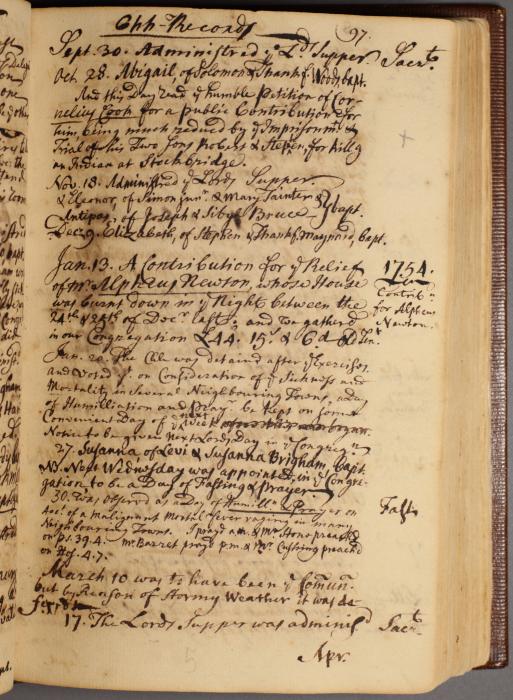 Chh-Records 97.
Sept. 30. Administred ye Lds Supper Sacrt.
Oct 28. Abigail, of Solomon & Thankf. Woods bapt.
And this Day read ye humble Petition of Cor-
nelius Cook for a public Contribution for
him being much reduced by ye Imprisonmt. &
Trial of his Two Sons Robert & Stephen, for killg
an Indian at Stockbridge.
Nov. 18. Administred ye Lords Supper.
& Eleonor, of Simon junr. & Mary Tainter &
Antipas, of Joseph & Sibyl Bruce - bapt.
Dec. 9. Elizabeth, of Stephen & Thankf. Maynard bapt.
Jan. 13. A Contribution for ye Relief 1754.
of mr. Alpheus Newton, whose House Contribn
was burnt down in ye Night between the for Alpheus
24th & 25th of Decr. last; and we gathered Newton.
in our Congregation £44. 15s & 6d old Ten.
Jan. 20. The Chh was detained after ye Exercises
and Voted yt. on Consideration of ye Sickness and
Mortality in Several Neighbouring Towns, a day
of Humiliation and Pray. be kept on some
Convenient Day of ye next Week
Notice to be given next Lords Day in ye Congregn.
27. Susanna, of Levi & Susanna Brigham, bapt.
NB. Next Wednesday was appointed, in ye Congre-
gation to be a Day of Fasting & Prayer
30. Was observd as a Day of Humilln & Prayer on Fast
acct. of a malignant Mortal Fever raging in many
Neighbouring Towns. I prayd a.m. & Mr. Stone preachd
on Ps. 39. 4. Mr. Barret prayd p.m. & Mr. Cushing preachd
on Hos. 4. 7.
March 10 was to have been ye Comun.
but by Reason of Stormy Weather it was de
ferrd
17. The Lords Supper was adminisd Sacrt.
Apr.